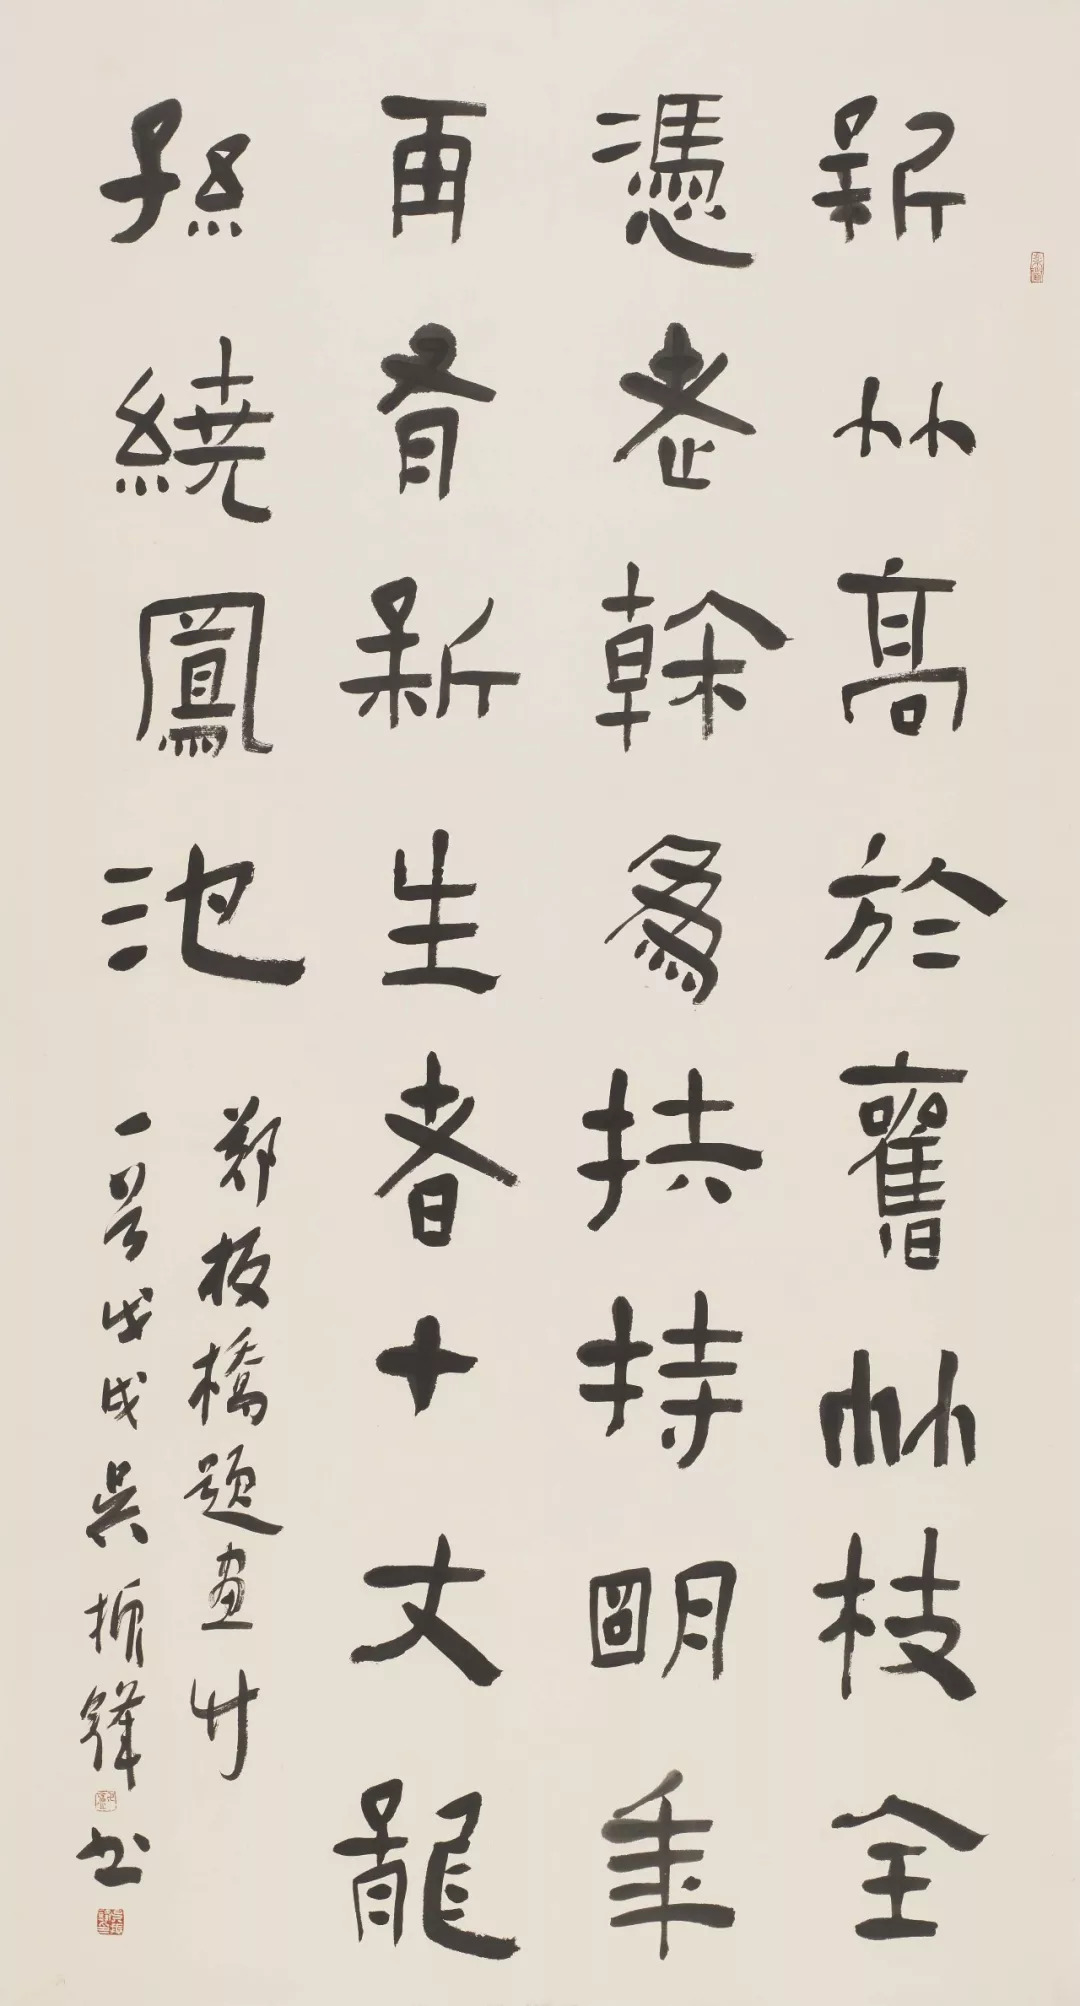 新竹高於舊竹枝全
憑老幹爲扶持明年
再有新生者十丈龍
孫繞鳳池
鄭板橋題畫竹
一首戊戌吳振鋒書